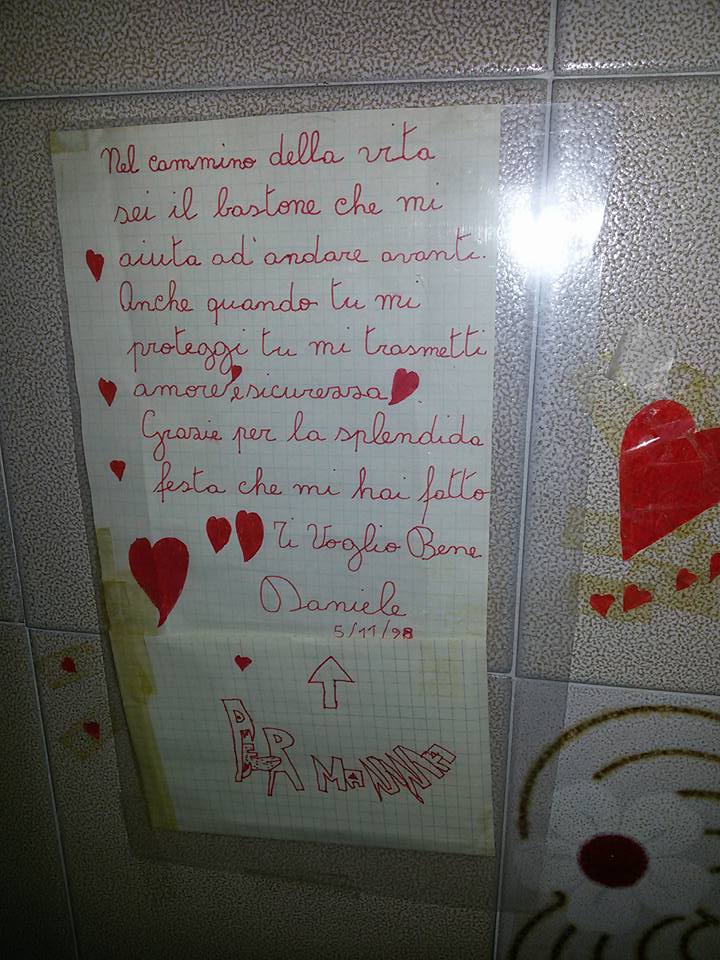 Nel cammino della vita
sei il bastone che mi
aiuta ad' andare avanti.
Anche quando tu mi
proteggi tu mi trasmetti
amore e sicurezza
Grazie per la splendida
festa che mi hai fatto
Ti Voglio Bene
Daniele
5/11/98
PER MAMMA